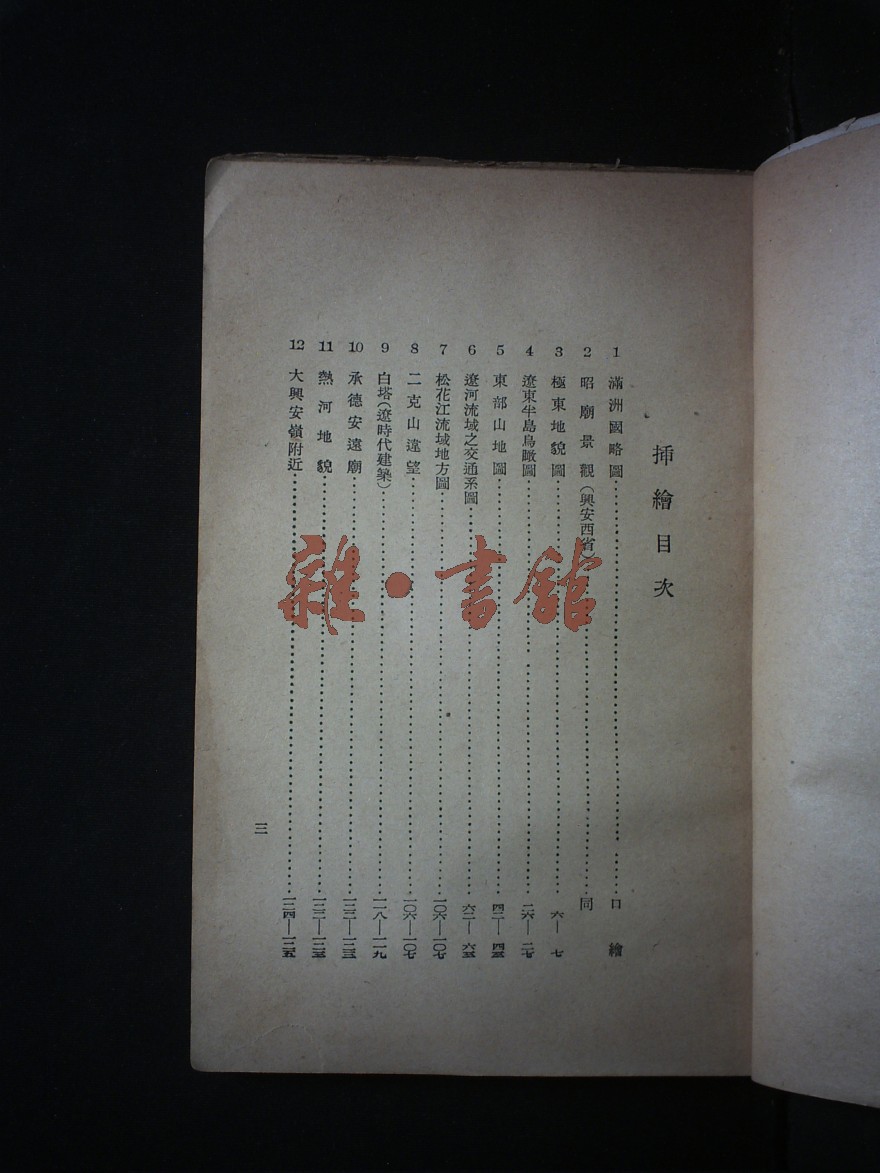 插繪目次
1 滿洲國略圖……口繪
2 昭廟景觀(興安西省)……同
3 極東地貌圖……六—七
4 遼東半島鳥瞰圖……二六—二七
5 東部山地圖……四二—四三
6 遼河流域之交通系圖……六二—六三
7 松花江流域地方圖……一〇六—一〇七
8 二克山遠望……一〇六—一〇七
9 白塔(遼時代建築)……一一八—一一九
10 承德安遠廟……一三二—一三三
11 熱河地貌……
12 大興安嶺附近……
三
雜·書館